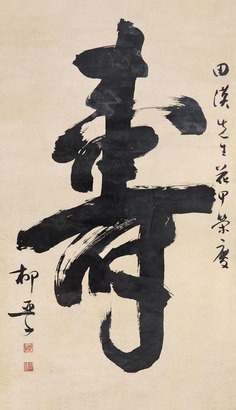 田漢先生花甲榮慶
寿
柳亞子